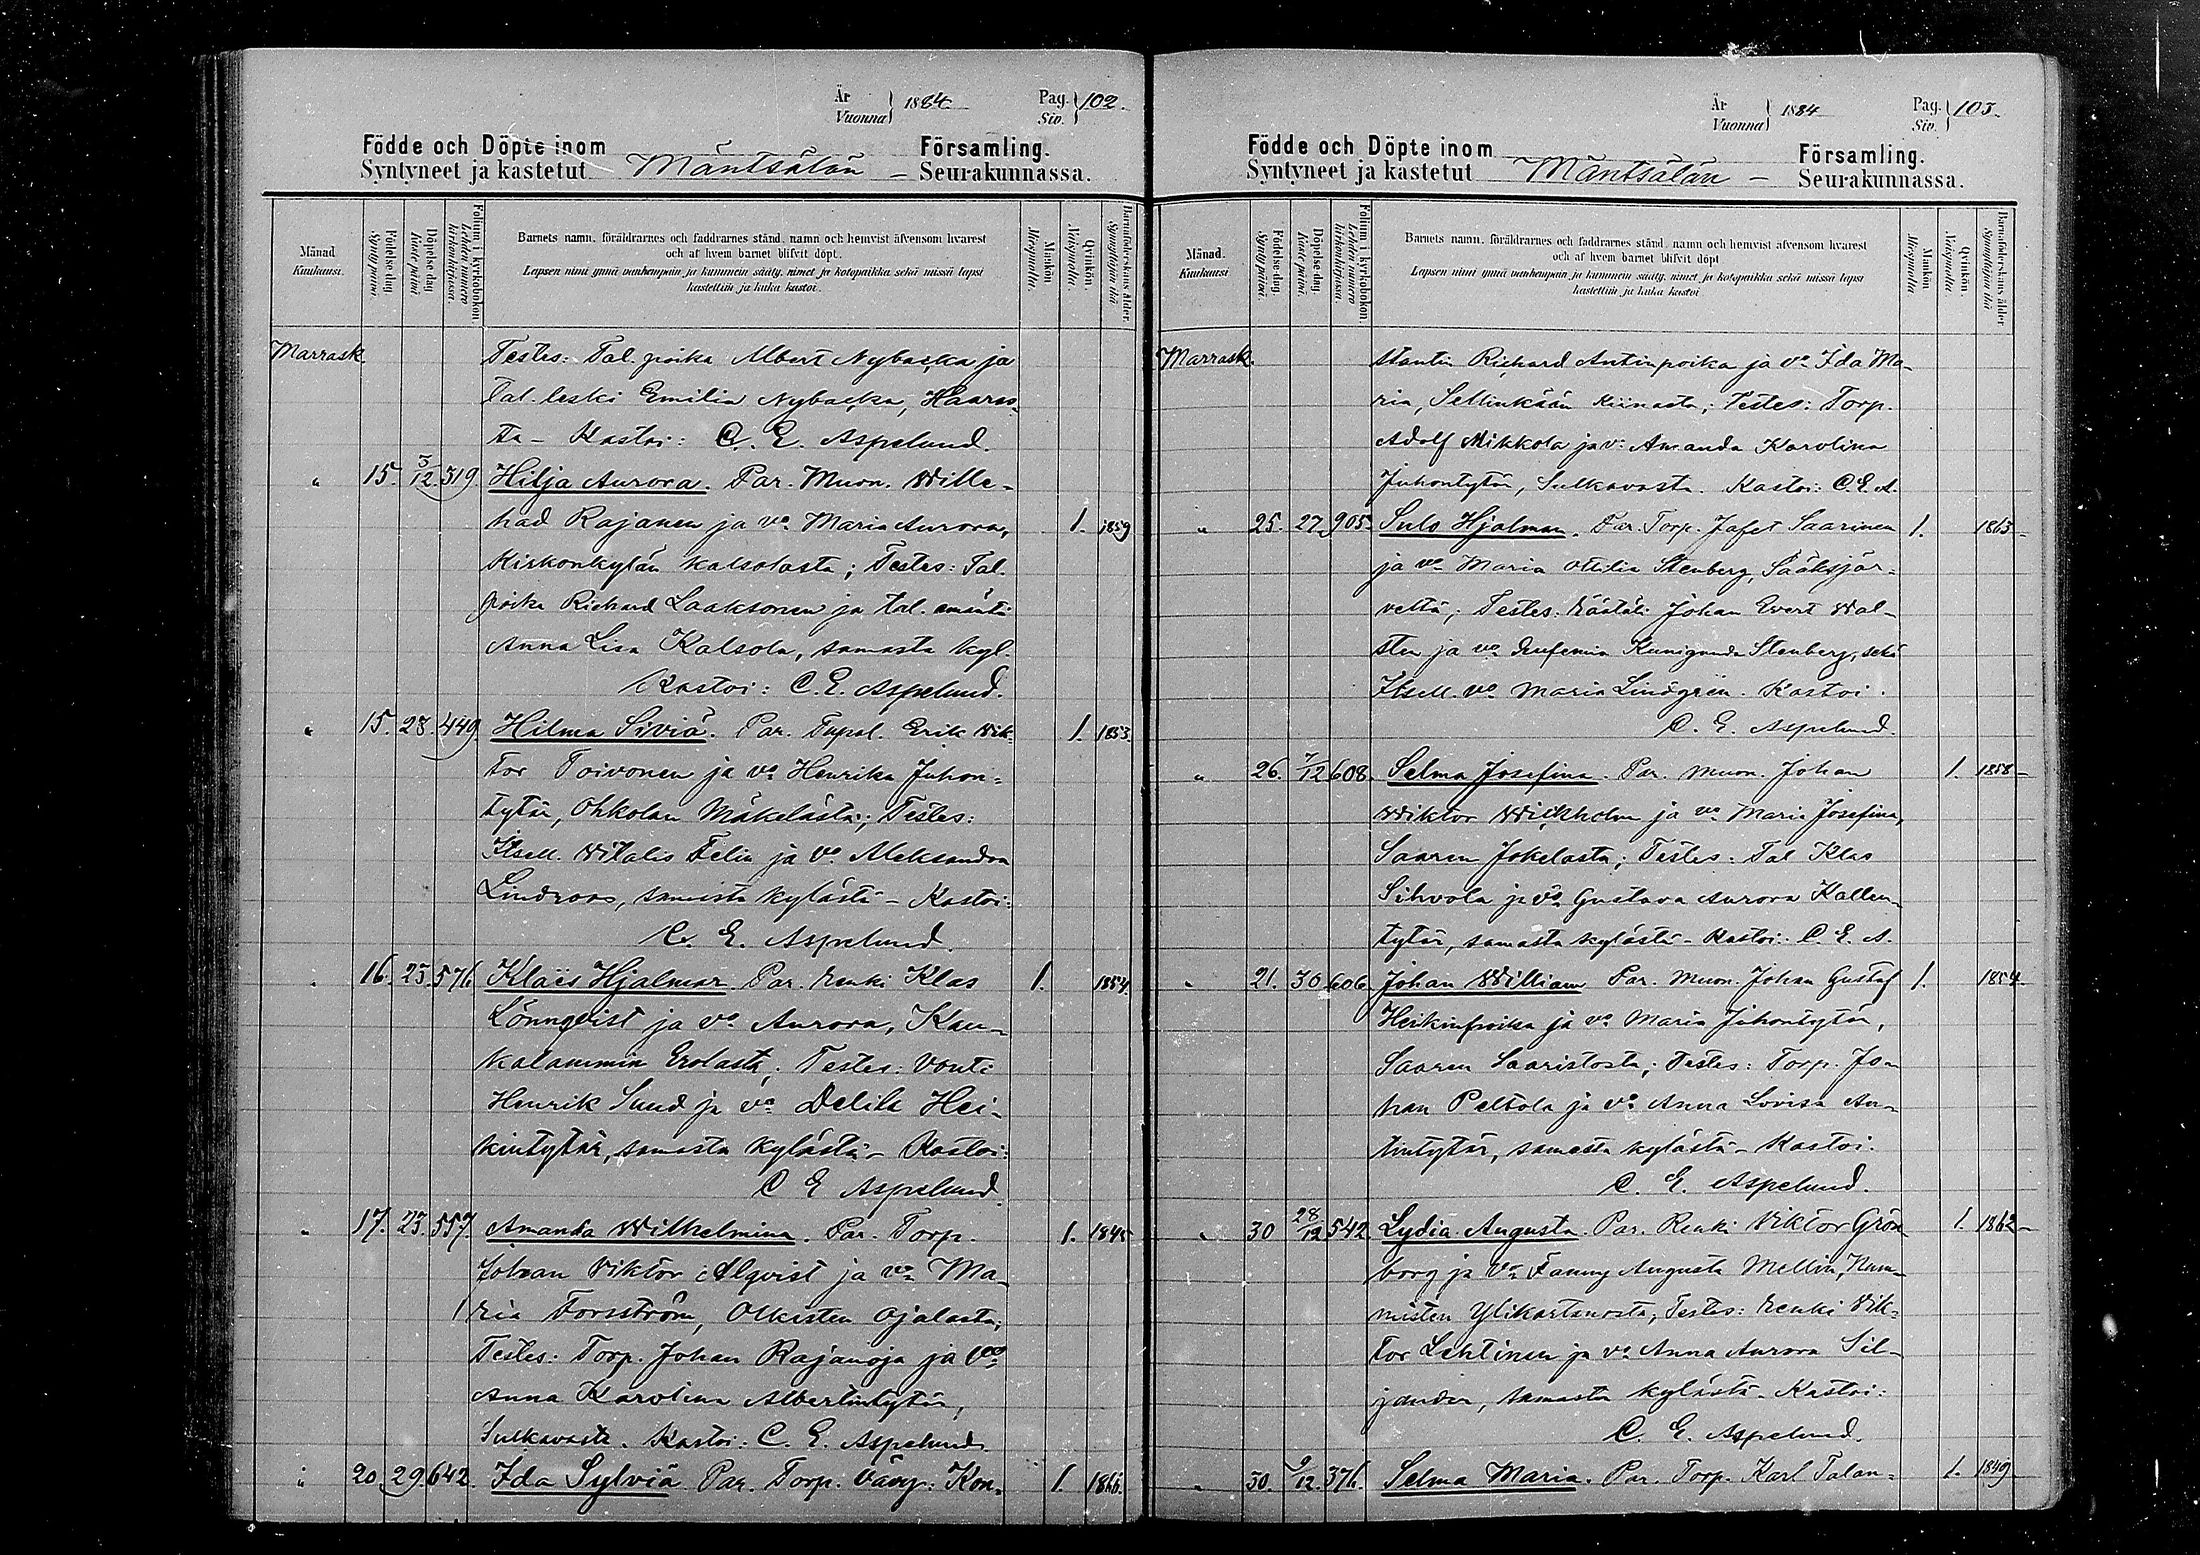 År
Vuonna } 1884.
Pag.
Siv. } 102.
Födde och Döpte inom
Syntyneet ja kastetut Mäntsälän – Församling.
Seurakunnassa.
Månad.
Kuukausi.
Födelse-dag.
Syntymä päivä.
Döpelse-dag.
Kaste päivä.
Folium i kyrkoboken.
Lehden numero kirkonkirjassa.
Barnets namn, föräldrarnes och faddrarnes stånd, namn och hemvist äfvensom hvarest
och af hvem barnet blifvit döpt.
Lapsen nimi ynnä vanhempain ja kummein sääty, nimet ja kotopaikka sekä missä lapsi
kastettiin ja kuka kastoi.
Mankön.
Miespuolia.
Qvinkön.
Naispuolia.
Barnaföderskans ålder.
Synnyttäjän ikä
Marrask. Testes: Tal. poika Albert Nybacka ja
Tal. leski Emilia Nybacka, Haaris-
ta – Kastoi: C. E. Aspelund.
" 15. 3/12 319. Hilja Aurora. Par. Muon. Wille-
had Rajanen ja vo Maria Aurora, 1. 1859
Kirkonkylän Kalsolasta; Testes: Tal.
poika Richard Laaksonen ja tal. emäntä
Anna Lisa Kalsola, samasta kyl.
Kastoi: C. E. Aspelund.
" 15. 23. 449. Hilma Siviä. Par. Tupal. Erik Wik- 1. 1853.
tor Toivonen ja vo Henrika Juhon-
tytär, Ohkolan Mäkelästä; Testes:
Itsell. Witalis Felin ja vo Aleksandra
Lindroos, samasta kylästä – Kastoi:
C. E. Aspelund.
" 16. 23. 576. Klaës Hjalmar. Par. Renki Klas 1. 1854.
Lönnqvist ja vo Aurora, Kau-
kalammin Erolasta; Testes: Vouti
Henrik Sund ja vo Delila Hei-
kintytär, samasta kylästä – Kastoi:
C E Aspelund
" 17. 23. 557. Amanda Wilhelmina. Par. Torp. 1. 1845
Johan Viktor Alqvist ja vo Ma-
ria Forsström, Olkisten Ojalasta;
Testes: Torp. Johan Rajanoja ja vo
Anna Karolina Albertintytär,
Sulkavasta. Kastoi: C. E. Aspelund
" 20. 29. 642. Ida Sylviä Par. Torp. Väny. Kon- 1. 1866.
År
Vuonna } 1884
Pag.
Siv. } 103.
Födde och Döpte inom
Syntyneet ja kastetut Mäntsälän – Församling.
Seurakunnassa.
Månad.
Kuukausi
Födelse-dag.
Syntymä päivä.
Döpelse-dag.
Kaste päivä.
Folium i kyrkoboken.
Lehden numero kirkonkirjassa.
Barnets namn, föräldrarnes och faddrarnes stånd, namn och hemvist äfvensom hvarest
och af hvem barnet blifvit döpt
Lapsen nimi ynnä vanhempain ja kummein sääty, nimet ja kotopaikka sekä missä lapsi
kastettiin ja kuka kastoi
Mankön
Miespuolia
Qvinkön.
Naispuolia.
Barnaföderskans ålder
Synnyttäjän ikä
Marrask. stantin Richard Antinpoika ja vo Ida Ma-
ria, Sellinkään Kiinasta; Testes: Torp.
Adolf Mikkola ja vo Amanda Karolina
Juhontytär, Sulkavasta. Kastoi: C. E. A.
" 25. 27. 905. Sulo Hjalmar. Par. Torp. Jafet Saarinen 1. 1863
ja vo Maria Otilia Stenberg, Sääksjär-
veltä; Testes: Räätäli Johan Evert Wal-
sten ja vo Eufemia Kunigunda Stenberg, sekä
Itsell. vo Maria Lindgren. Kastoi.
C. E. Aspelund.
" 26. 7/12 608. Selma Josefina. Par. Muon. Johan 1. 1858
Wiktor Wickholm ja vo Maria Josefina,
Saaren Jokelasta; Testes: Tal Klas
Sihvola ja vo Gustava Aurora Kallen-
tytär, samasta kylästä – Kastoi: C. E. A.
" 21. 30 606 Johan William Par. Muon. Johan Gustaf 1. 1854
Heikinpoika ja vo Maria Juhontytär,
Saaren Saaristosta; Testes: Torp. Jo-
han Peltola ja vo Anna Lovisa An-
tintytär, samasta kylästä – Kastoi.
C. E. Aspelund.
" 30 28/12 542 Lydia Augusta. Par. Renki Viktor Grön- 1. 1862
borg ja vo Fanny Augusta Mellin, Num-
misten Ylikartanosta; Testes: Renki Vik-
tor Lehtinen ja vo Anna Aurora Sil-
jander, samasta kylästä – Kastoi:
C. E. Aspelund.
" 30. 9/12 376. Selma Maria. Par. Torp. Karl Talan- 1. 1849